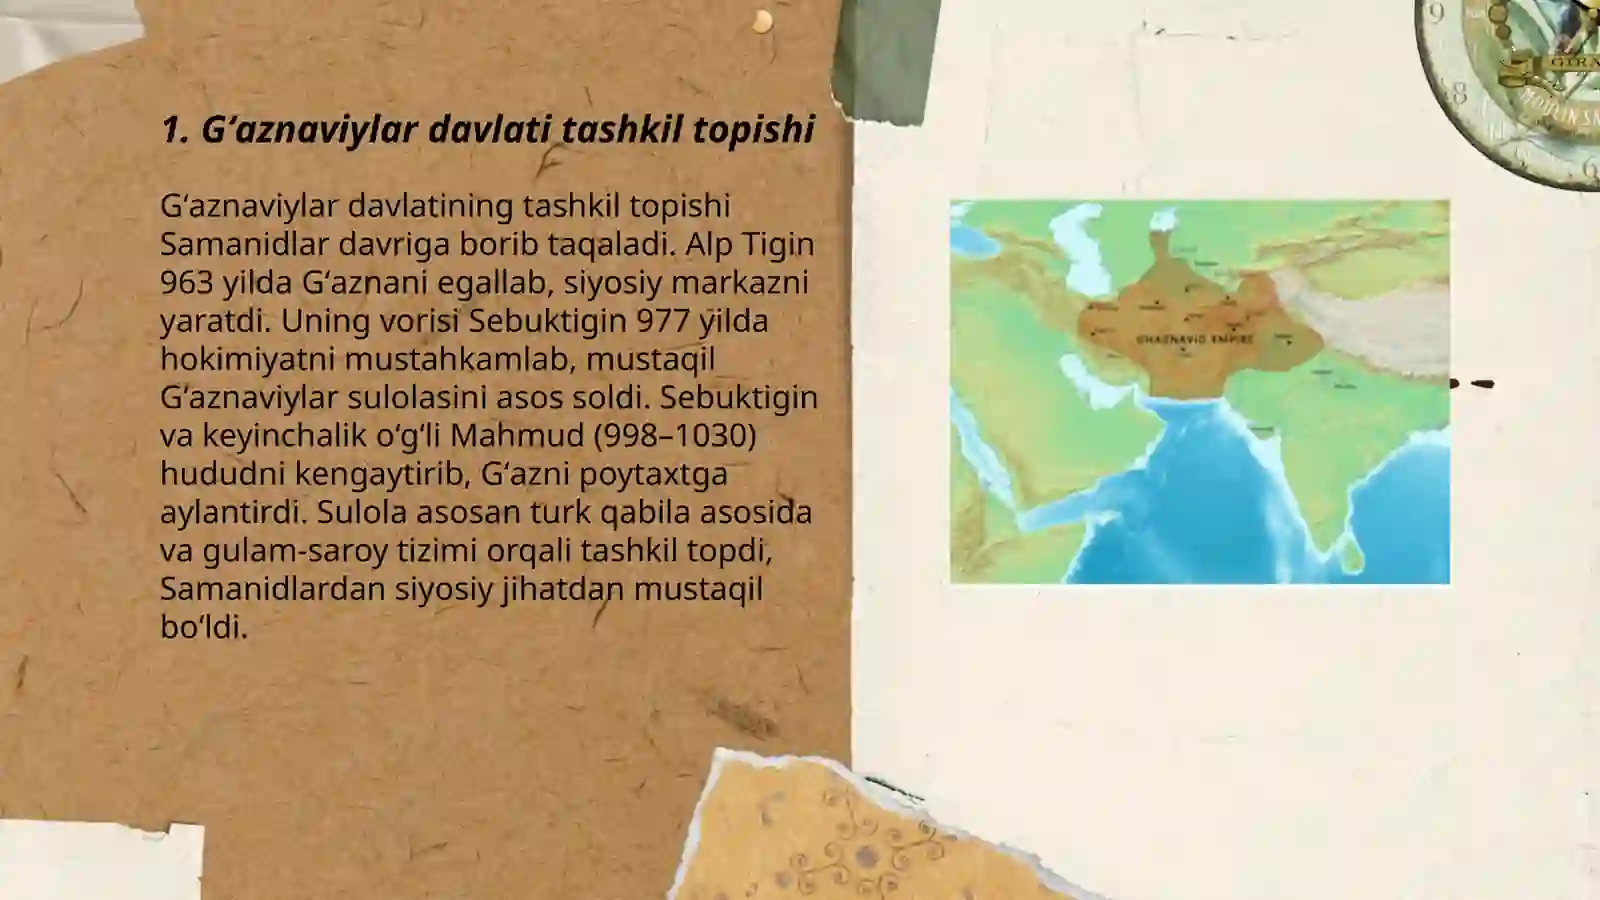 1. Gʻaznaviylar davlati tashkil topishi
Gʻaznaviylar davlatining tashkil topishi
Samanidlar davriga borib taqaladi. Alp Tigin
963 yilda Gʻaznani egallab, siyosiy markazni
yaratdi. Uning vorisi Sebuktigin 977 yilda
hokimiyatni mustahkamlab, mustaqil
Gʻaznaviylar sulolasini asos soldi. Sebuktigin
va keyinchalik oʻgʻli Mahmud (998–1030)
hududni kengaytirib, Gʻazni poytaxtga
aylantirdi. Sulola asosan turk qabila asosida
va gulam-saroy tizimi orqali tashkil topdi,
Samanidlardan siyosiy jihatdan mustaqil
boʻldi.
GHAZNAVID EMPIRE
9
8
6